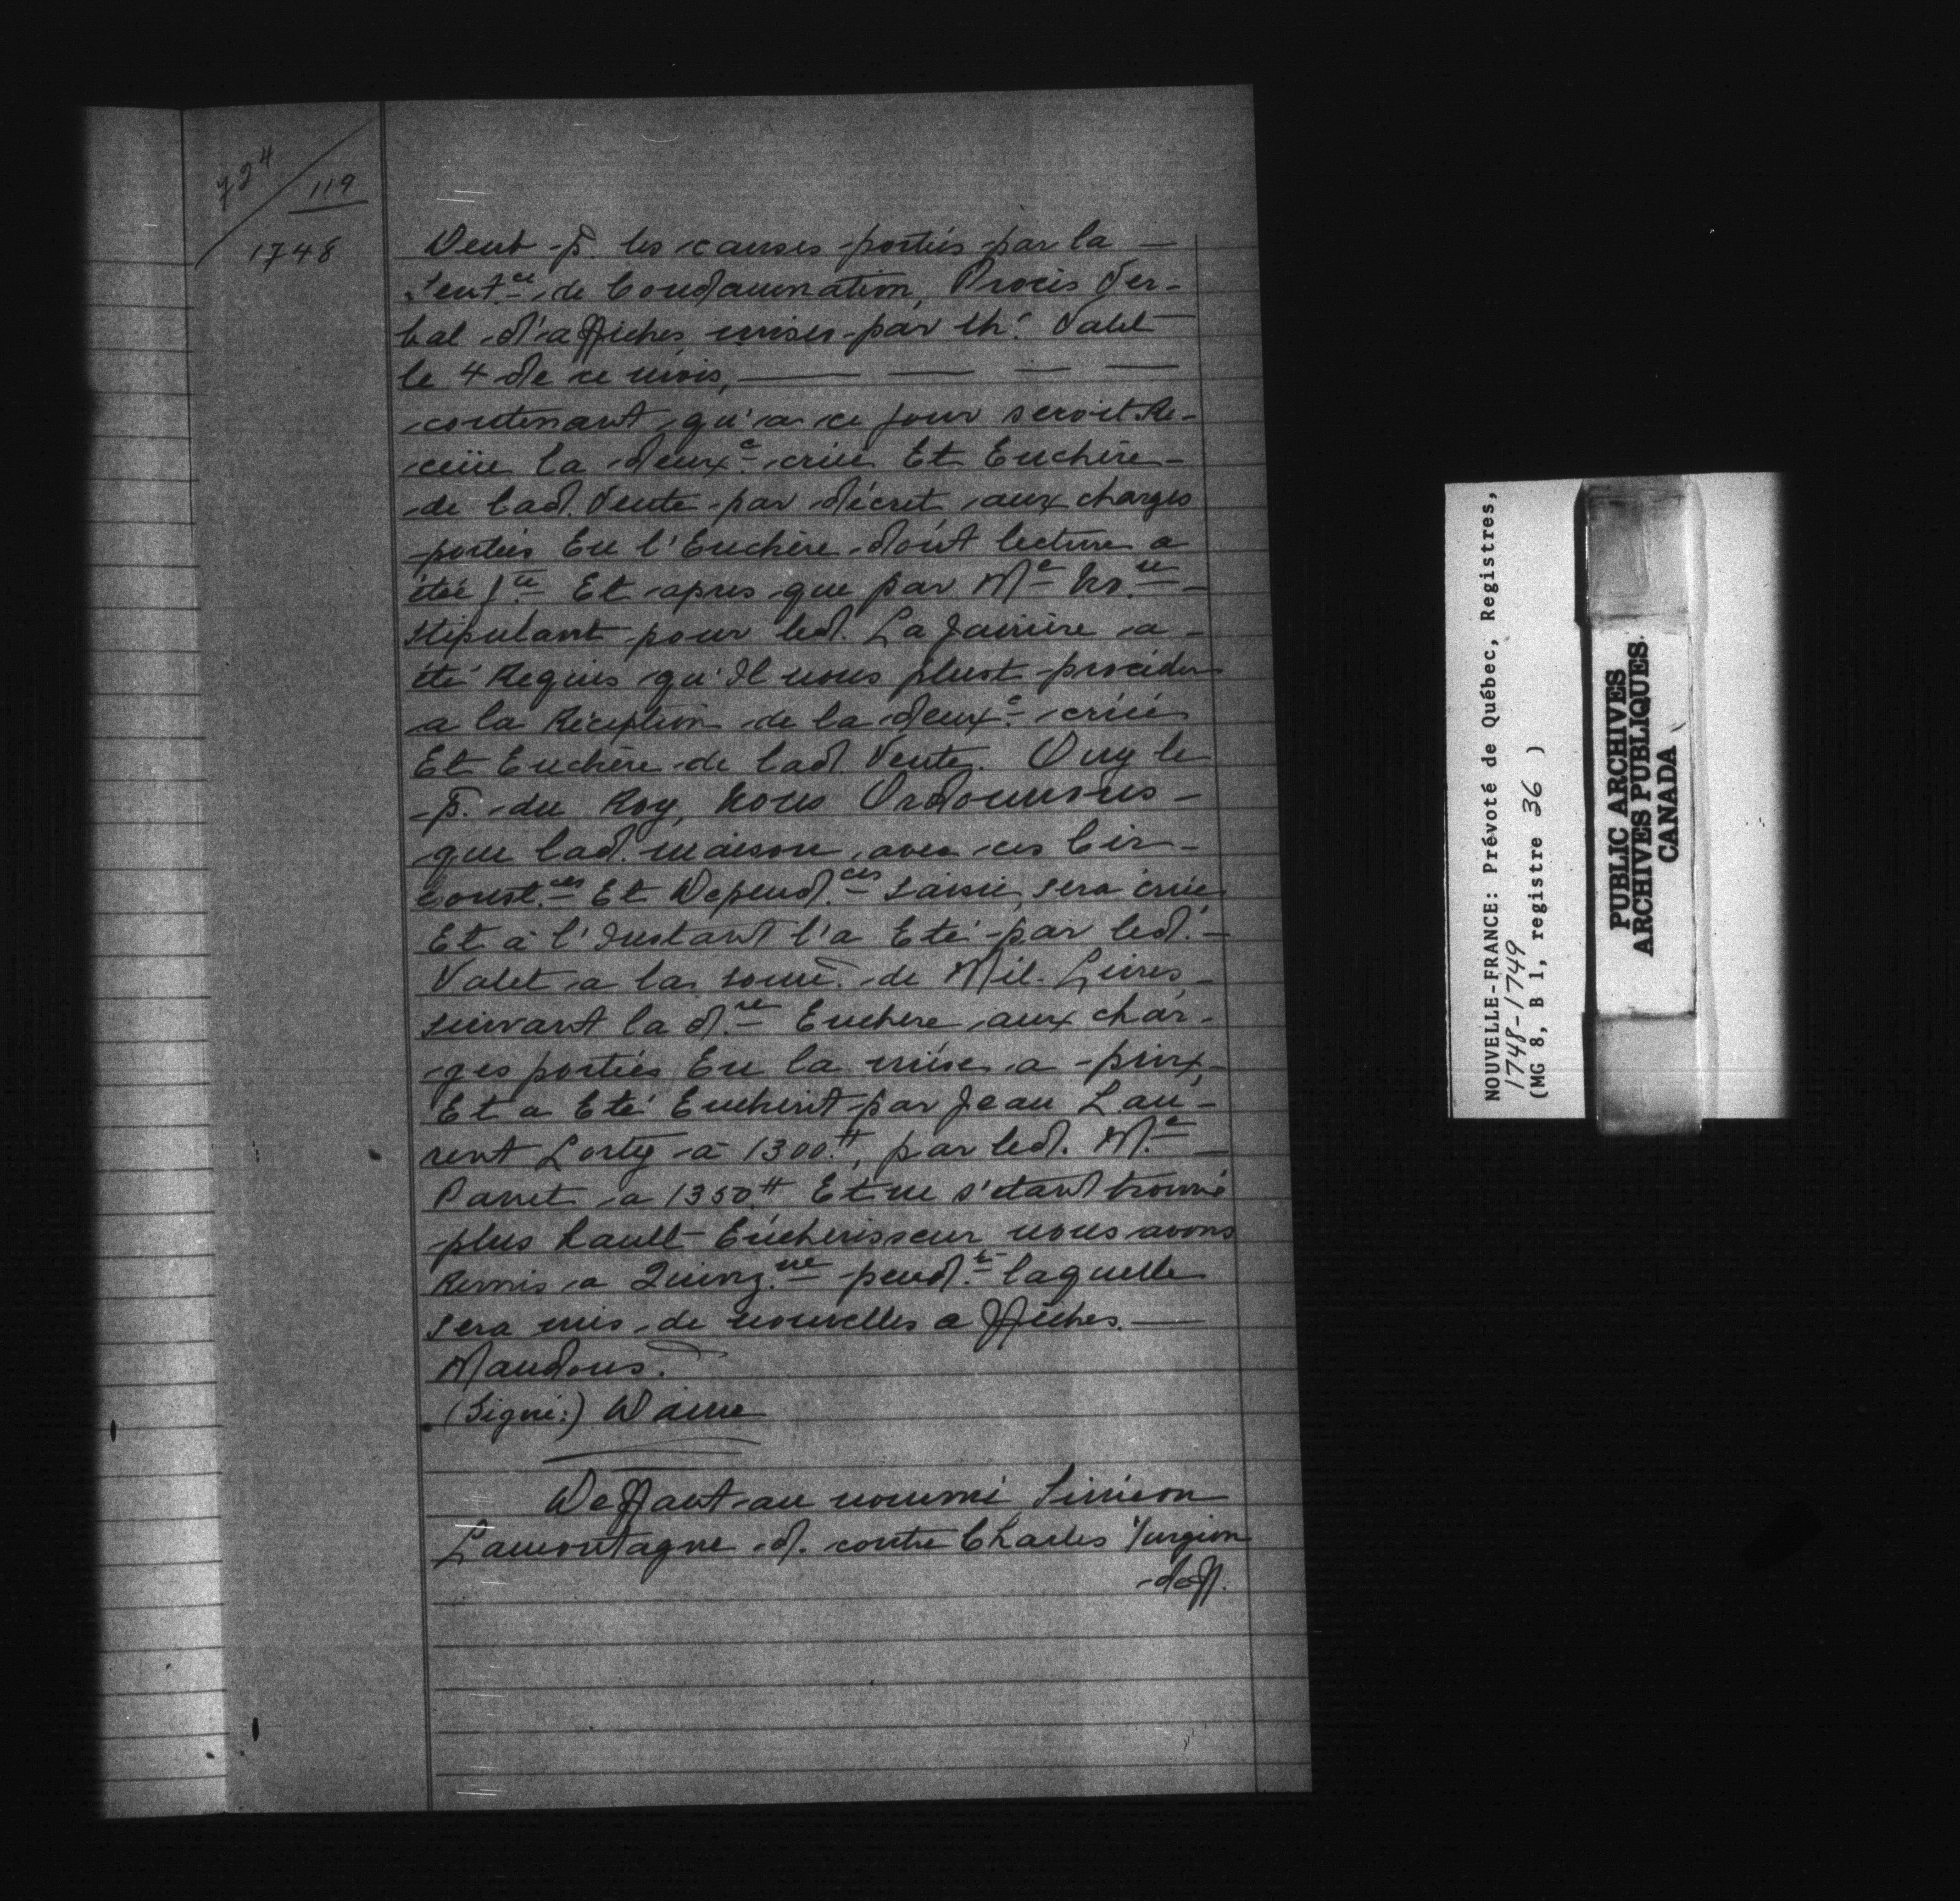 724
119
1748
Deub p. les causes portées par la —
Sent.ce de Condamnation, Procès Ver-
bal d'affiches mises par Thé. Valet
le 4 de ce mois, — — — —
contenant qu'a ce jour seroit Re-
ceüe la deux.e criée Et Enchère
de lad. Vente par décret aux charges
portées En l'Enchère dont lecture a
été f.te Et apres que par M.e No.re
stipulant pour led. La Jairière a
été Requis qu'Il nous plust procéder
a la Réception de la deux.e criée
Et Enchère de lad. Vente. Ouy le
p. du Roy, Nous Ordonnons
que lad. maison avec ces Cir-
const.ces Et Depend.ces saisie, sera criée
Et à l'Instant l'a Eté par led.
Valet a la som̄e. de Mil Livres,
suivant la d.re Enchere aux char-
ges portées En la mise a prix,
Et a Eté Enchérit par Jean Lau-
rent Lorty à 1300.tt, par led. M.e
Panet a 1350tt Et ne s'etant trouvé
plus hault Enchérisseur nous avons
Remis a Quinz.ne pend.t laquelle
sera mis de nouvelles affiches. —
Mandons.
(Signé:) Daine
Deffaut au nommé Siméon
Lamontagne d. contre Charles Turgion
deff.
NOUVELLE-FRANCE: Prévoté de Québec, Registres,
1748-1749
(MG 8, B 1, registre 36 )
PUBLIC ARCHIVES
ARCHIVES PUBLIQUES
CANADA